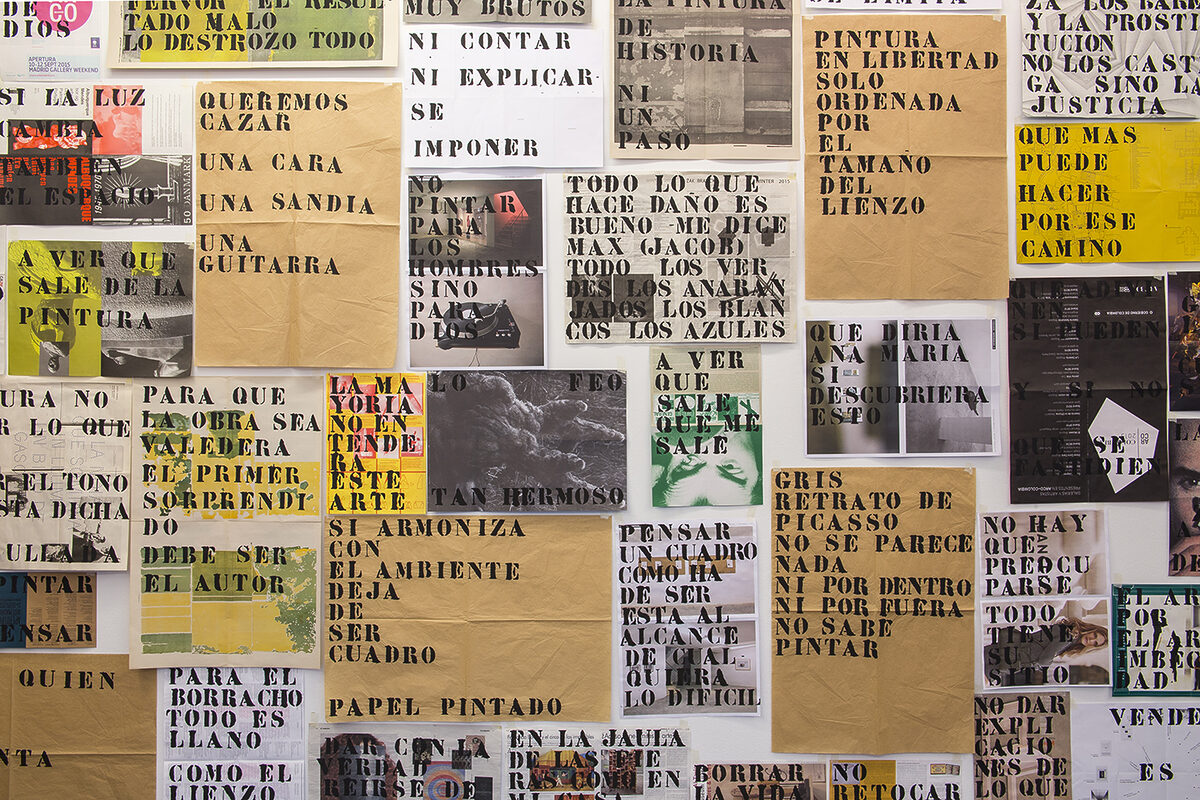 DE
DIOS
CO
APERTURA
10-12 SEPT 2015
MADRID GALLERY WEEKEND
FERVOR EL RESUL
TADO MALO
LO DESTROZO TODO
MUY BRUTOS
NI CONTAR
NI EXPLICAR
SE
IMPONER
LA PINTURA
DE
HISTORIA
NI
UN
PASO
PINTURA
EN LIBERTAD
SOLO
ORDENADA
POR
EL
TAMAÑO
DEL
LIENZO
ZA LOS BAR
Y LA PROSTI
TUCION
NO LOS CAST
GA SINO LA
JUSTICIA
SI LA LUZ
CAMBIA
TAMBIEN
EL ESPACIO
50 DANMARK
QUEREMOS
CAZAR
UNA CARA
UNA SANDIA
UNA
GUITARRA
NO
PINTAR
PARA
LOS
HOMBRES
SINO
PARA
DIOS
TODO LO QUE
HACE DAÑO ES
BUENO ME DICE
MAX (JACOB)
TODO LOS VER
DES LOS ANARAN
JADOS LOS BLAN
COS LOS AZULES
QUE MAS
PUEDE
HACER
POR ESE
CAMINO
A VER QUE
SALE DE LA
PINTURA
QUE DIRIA
ANA MARIA
SI
DESCUBRIERA
ESTO
SI PUEDEN
Y SI NO
QUE SE
FASTIDIEN
URA NO
R LO QUE
R EL TONO
STA DICHA
ULLADA
PARA QUE
LA OBRA SEA
VALEDERA
EL PRIMER
SORPRENDI
DO
DEBE SER
EL AUTOR
LA MA
YORIA
NO EN
TENDE
RA
ESTE
ARTE
LO FEO
TAN HERMOSO
A VER
QUE
SALE
QUE ME
SALE
GRIS
RETRATO DE
PICASSO
NO SE PARECE
NADA
NI POR DENTRO
NI POR FUERA
NO SABE
PINTAR
SI ARMONIZA
CON
EL AMBIENTE
DEJA
DE
SER
CUADRO
PAPEL PINTADO
PENSAR
UN CUADRO
COMO HA
DE SER
ESTA AL
ALCANCE
DE CUAL
QUIERA
LO DIFICIL
NO HAY
QUE
PREOCU
PARSE
TODO
TIENE
SU
SITIO
EL AR
POR
EL AR
IMBEC
DAD
PINTAR
ENSAR
QUIEN
NTA
PARA EL
BORRACHO
TODO ES
LLANO
COMO EL
LIENZO
DAR CON LA
VERDAD
REIRSE DE
EN LA JAULA
DE LAS FIE
RAS COMO EN
MI CASA
BORRAR
LA VIDA
NO
RETOCAR
NO DAR
EXPLI
CACIO
NES DE
LO QUE
VENDE
ES